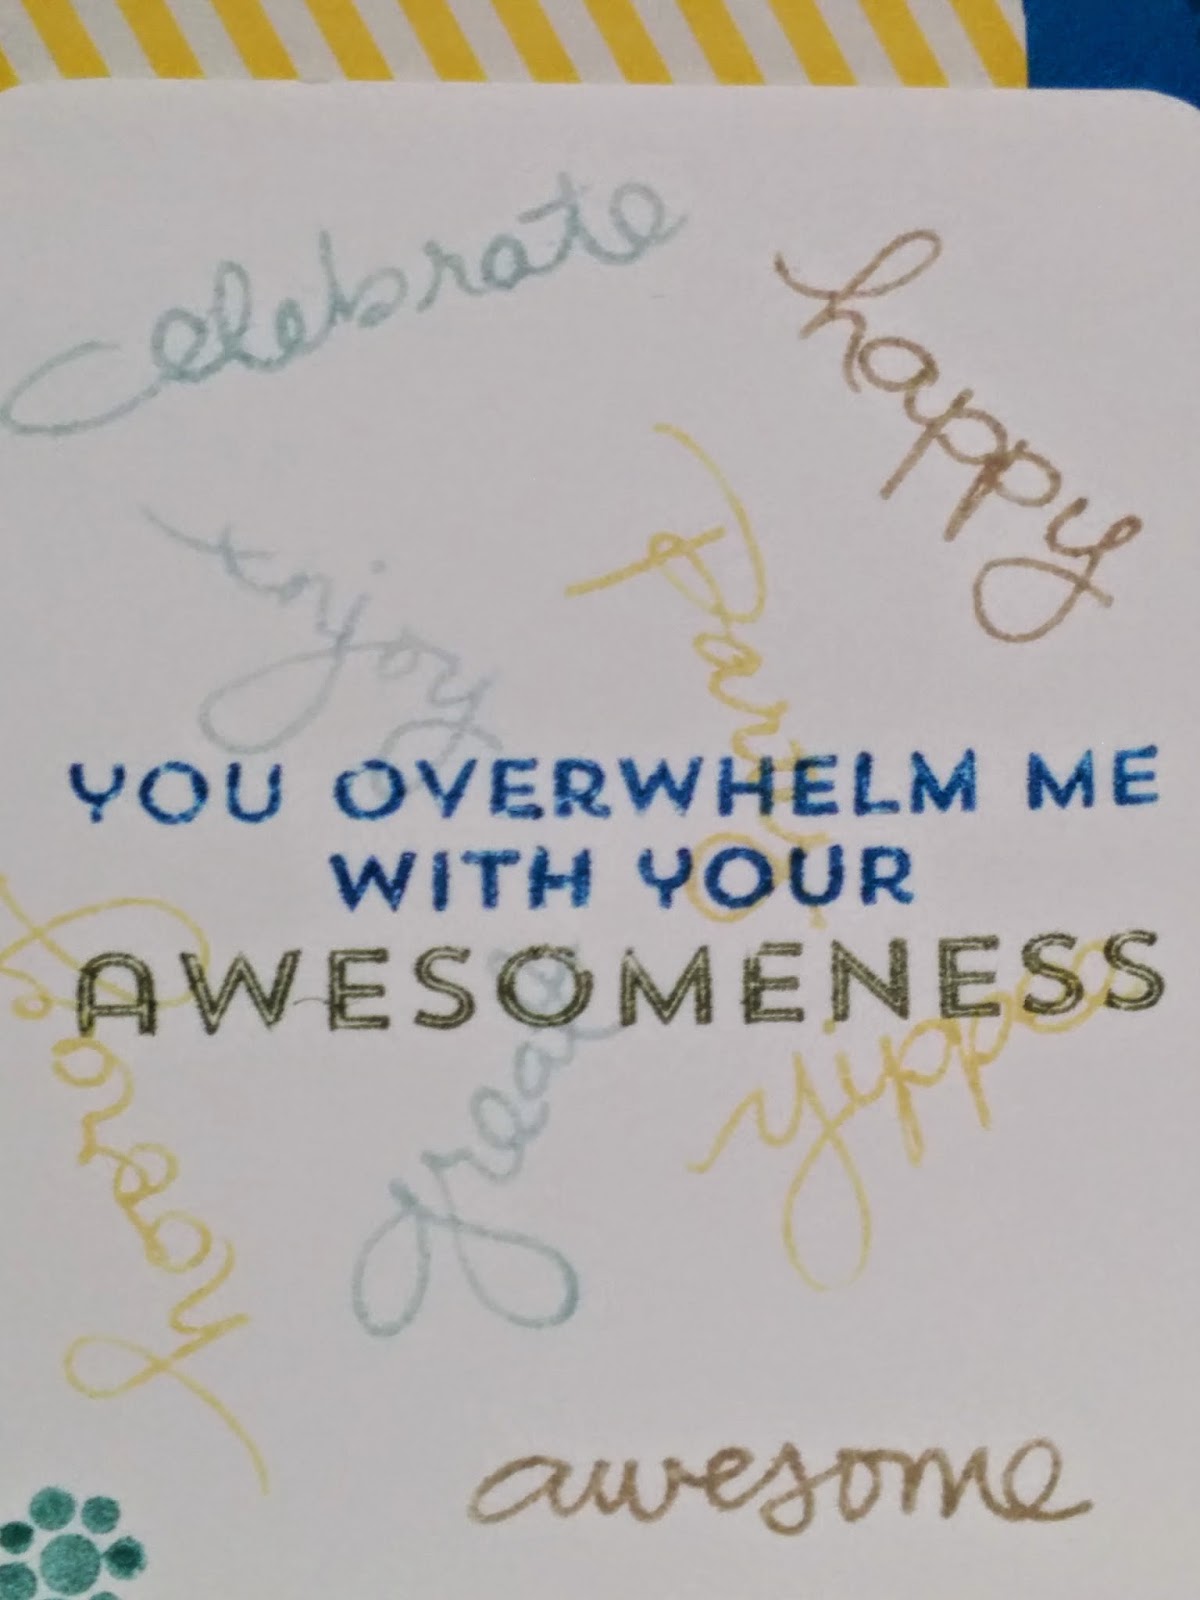 celebrate
happy
enjoy
party
YOU OVERWHELM ME
WITH YOUR
AWESOMENESS
hooray
great
yippee
awesome